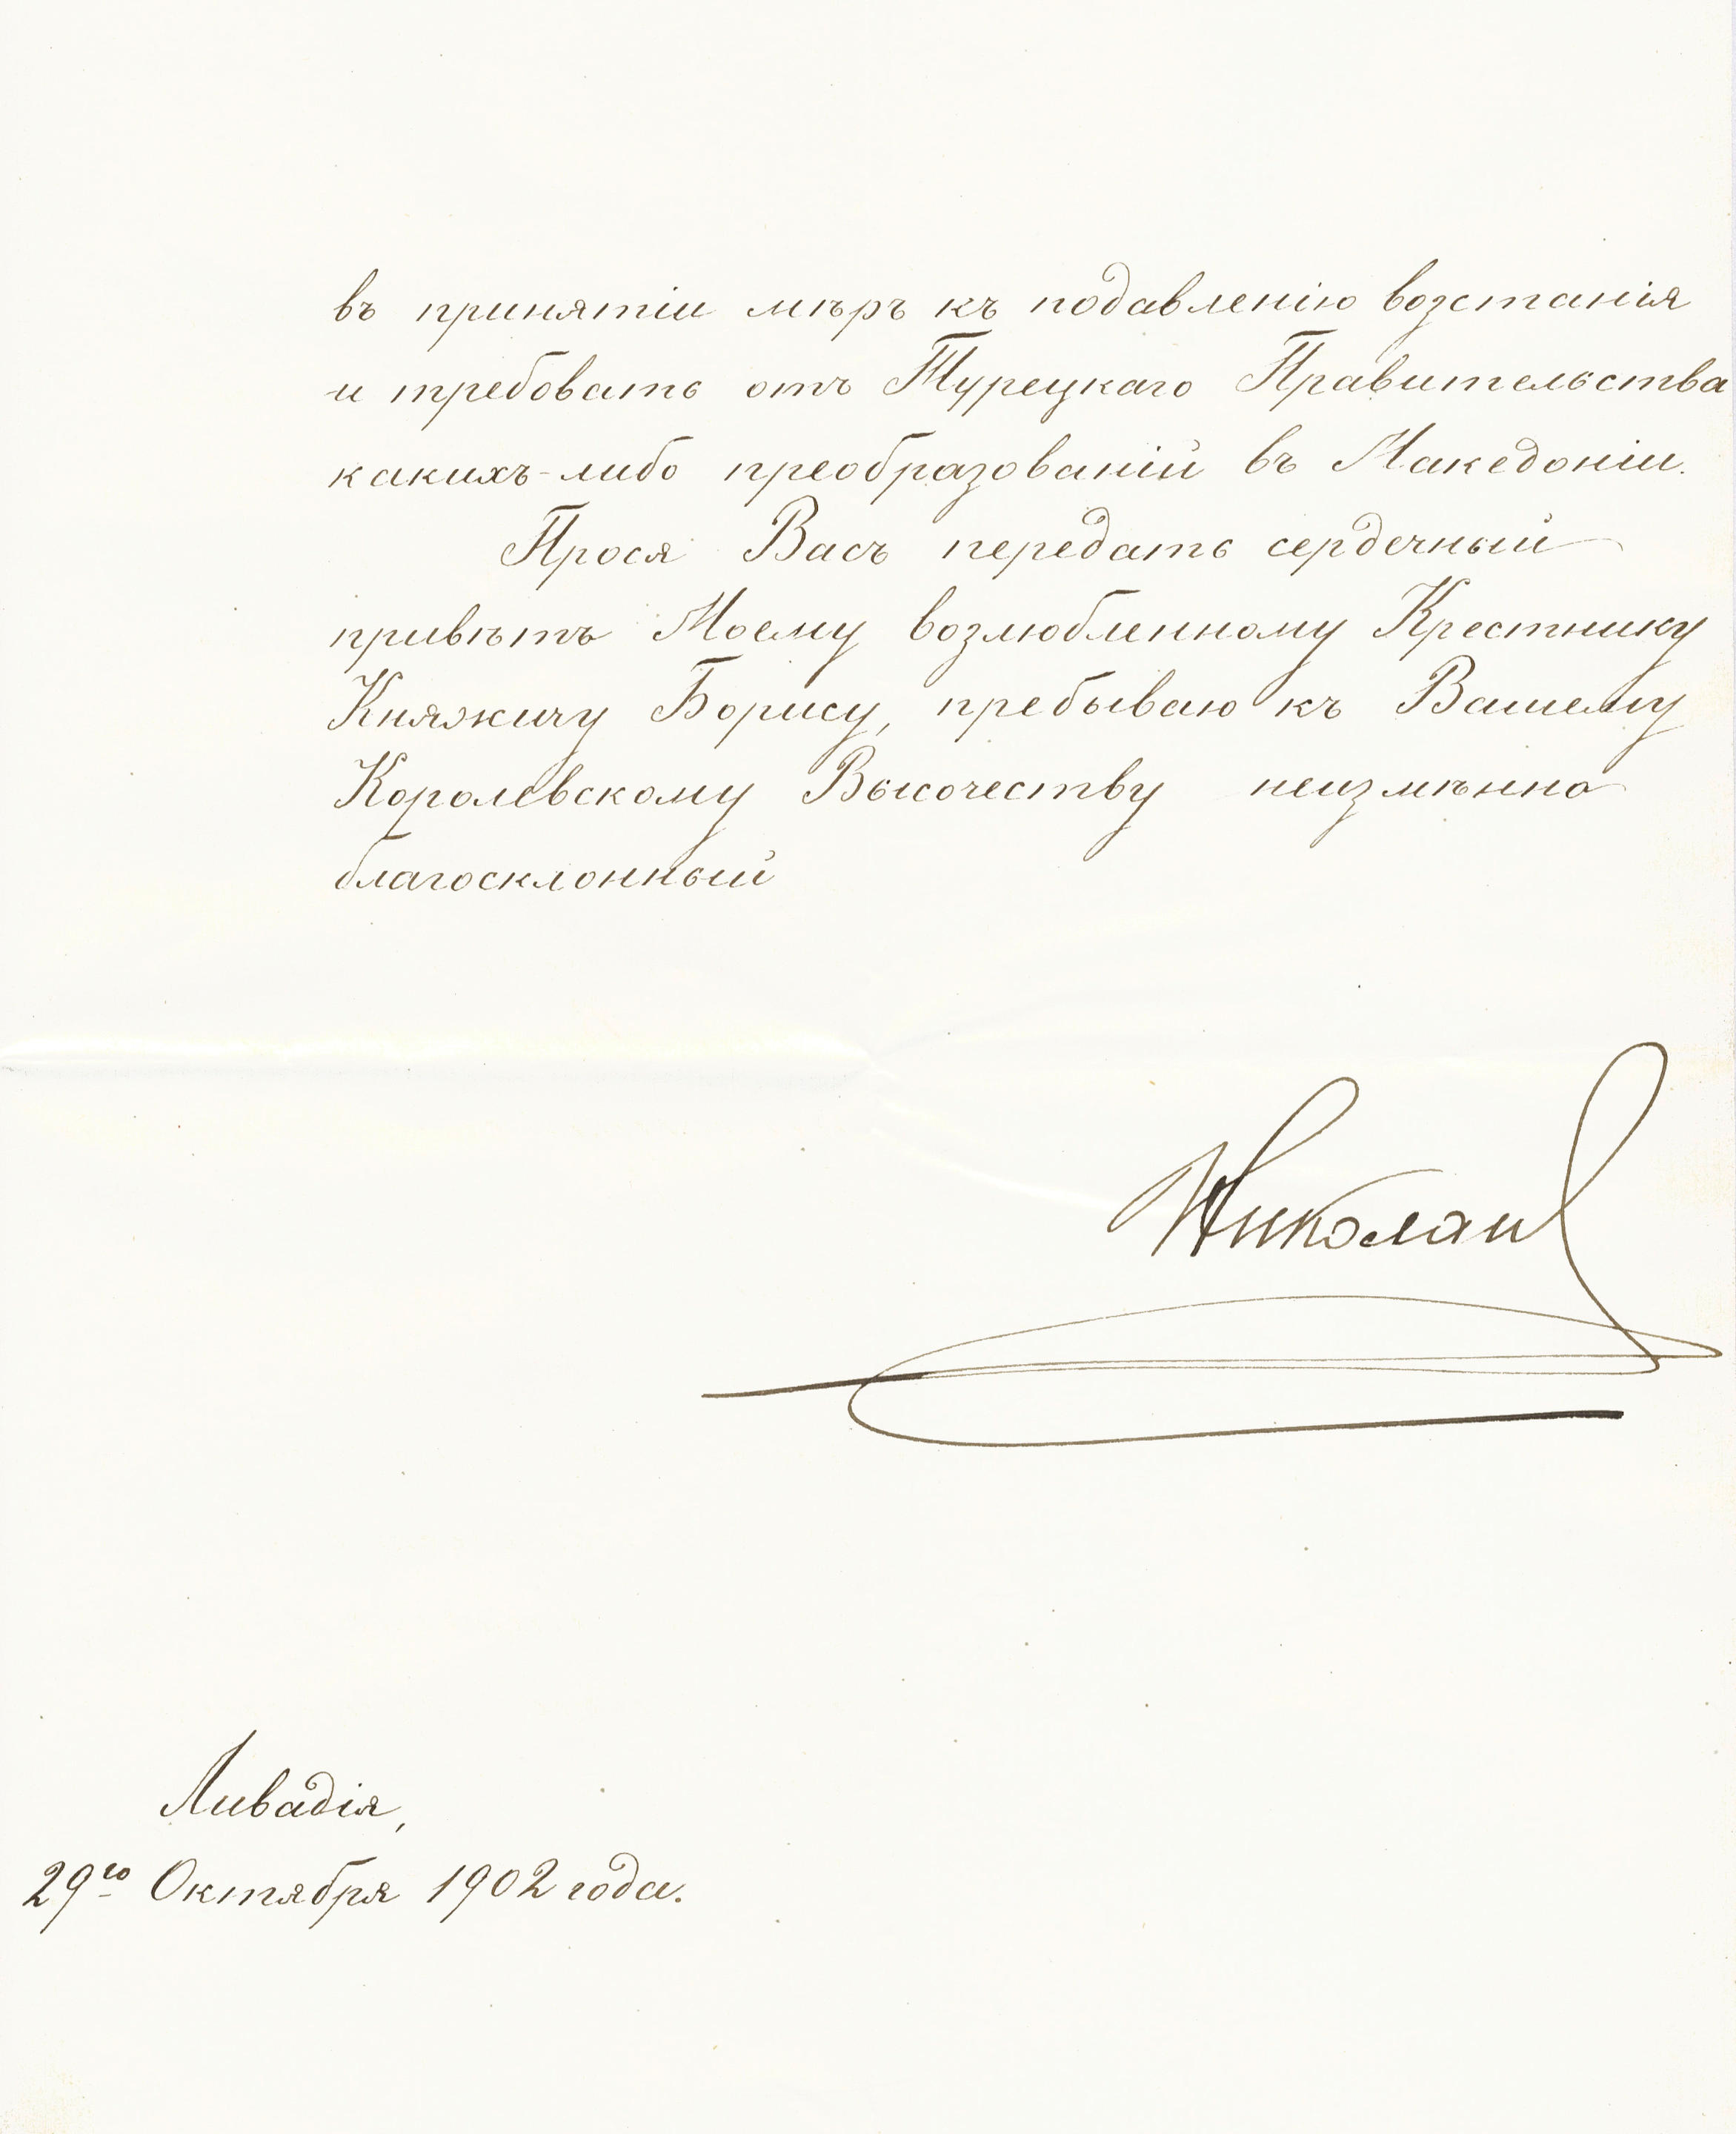 въ принятіи мѣръ къ подавленію возстанія
и требовать отъ Турецкаго Правительства
какихъ-либо преобразованій въ Македоніи.
Прося Васъ передать сердечный
привѣтъ Моему возлюбленному Крестнику
Княжичу Борису, пребываю къ Вашему
Королевскому Высочеству неизмѣнно
благосклонный
Николай
Ливадія,
29го Октября 1902 года.